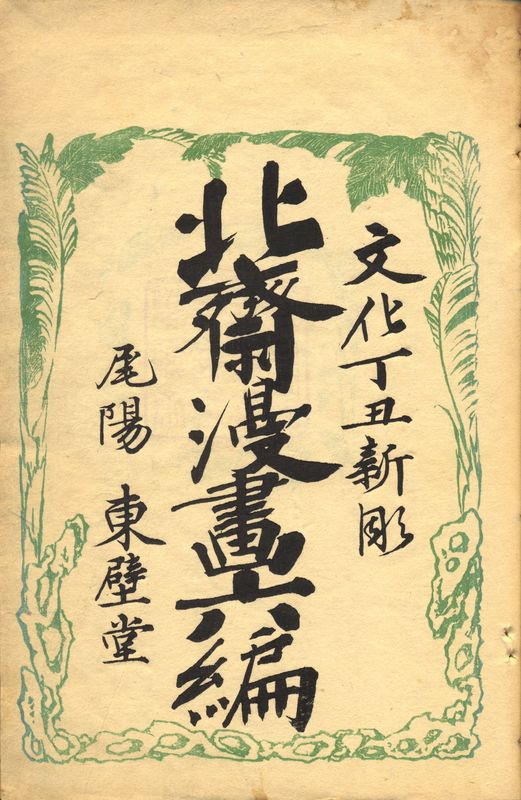 文化丁丑新彫
北齋漫畫六編
尾陽 東壁堂